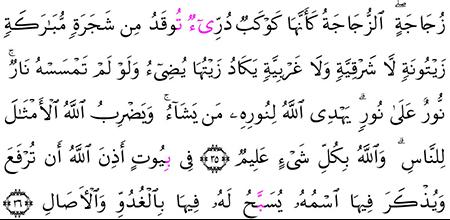 زُجَاجَةٍ ۖ ٱلزُّجَاجَةُ كَأَنَّهَا كَوْكَبٌ دُرِّىٓءٌ تُوقَدُ مِن شَجَرَةٍ مُّبَٰرَكَةٍ
زَيْتُونَةٍ لَّا شَرْقِيَّةٍ وَلَا غَرْبِيَّةٍ يَكَادُ زَيْتُهَا يُضِىٓءُ وَلَوْ لَمْ تَمْسَسْهُ نَارٌ ۚ
نُّورٌ عَلَىٰ نُورٍ ۗ يَهْدِى ٱللَّهُ لِنُورِهِۦ مَن يَشَآءُ ۚ وَيَضْرِبُ ٱللَّهُ ٱلْأَمْثَٰلَ
لِلنَّاسِ ۗ وَٱللَّهُ بِكُلِّ شَىْءٍ عَلِيمٌ ٣٥ فِى بِيُوتٍ أَذِنَ ٱللَّهُ أَن تُرْفَعَ
وَيُذْكَرَ فِيهَا ٱسْمُهُۥ يُسَبَّحُ لَهُۥ فِيهَا بِٱلْغُدُوِّ وَٱلْءَاصَالِ ٣٦